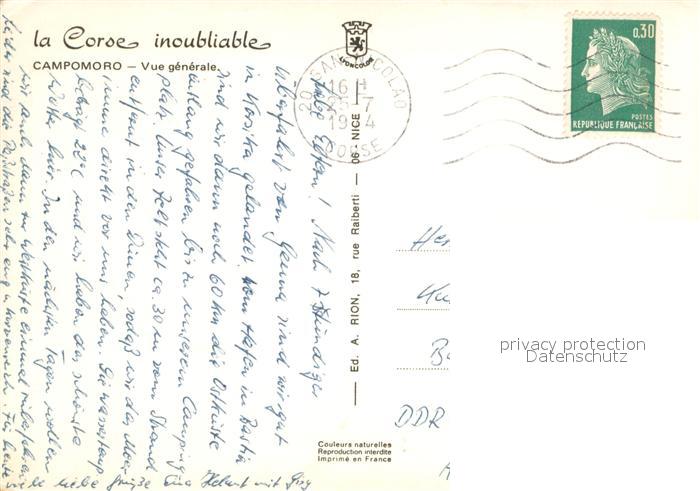 la Corse inoubliable
CAMPOMORO — Vue générale.
APONCOLOR
20 SAN NICOLAO
16 H
25-7
19 4
CORSE
0,30
POSTES
REPUBLIQUE FRANÇAISE
Ed. A. RION, 18, rue Raiberti — 06 - NICE
Liebe Eltern! Nach 7 stündiger
Überfahrt von Genua sind wir gut
in Korsika gelandet. Vom Hafen in Bastia
sind wir dann noch 60 km die Ostküste
entlang gefahren bis zu unserem Camping-
platz. Unser Zelt steht ca. 30 m vom Strand
entfernt in den Dünen, sodaß wir das Meer
immer direkt vor uns haben. Die Wassertemp.
beträgt 22°C und wir haben das schönste
Wetter hier. In den nächsten Tagen wollen
wir auch dann zur Westküste einmal
Leider sind die Paßstraßen sehr eng u. kurvenreich. Für heute
viele liebe Grüße Eure Helmut mit
He
Ku
B
DDR
privacy protection
Datenschutz
Couleurs naturelles
Reproduction interdite
Imprimé en France